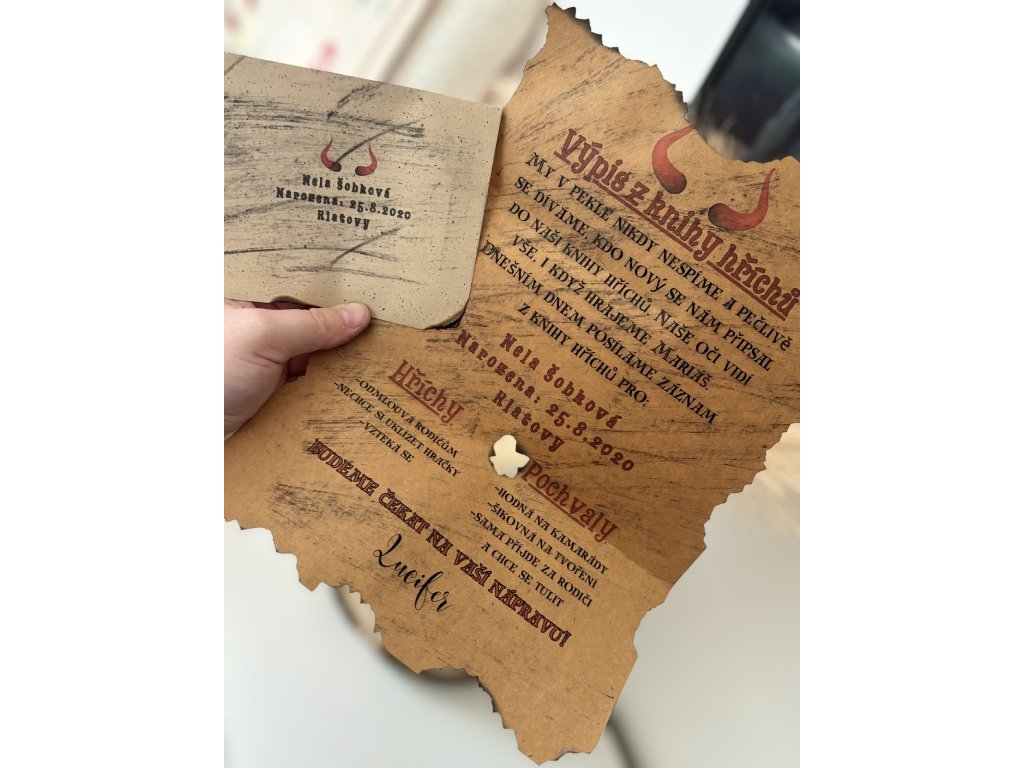 Nela Šobková
Narozena: 25.8.2020
Klatovy
Výpis z knihy hříchů
MY V PEKLE NIKDY NESPÍME A PEČLIVĚ
SE DÍVÁME, KDO NOVÝ SE NÁM PŘIPSAL
DO NAŠÍ KNIHY HŘÍCHŮ. NAŠE OČI VIDÍ
VŠE, I KDYŽ HRAJEME MARIÁŠ.
DNEŠNÍM DNEM POSÍLÁME ZÁZNAM
Z KNIHY HŘÍCHŮ PRO:
Nela Šobková
Narozena: 25.8.2020
Klatovy
Hříchy
-ODMLOUVÁ RODIČŮM
-NECHCE SI UKLÍZET HRAČKY
-VZTEKÁ SE
Pochvaly
-HODNÁ NA KAMARÁDY
-ŠIKOVNÁ NA TVOŘENÍ
-SAMA PŘIJDE ZA RODIČI
A CHCE SE TULIT
BUDEME ČEKAT NA VAŠÍ NÁPRAVU!
Lucifer